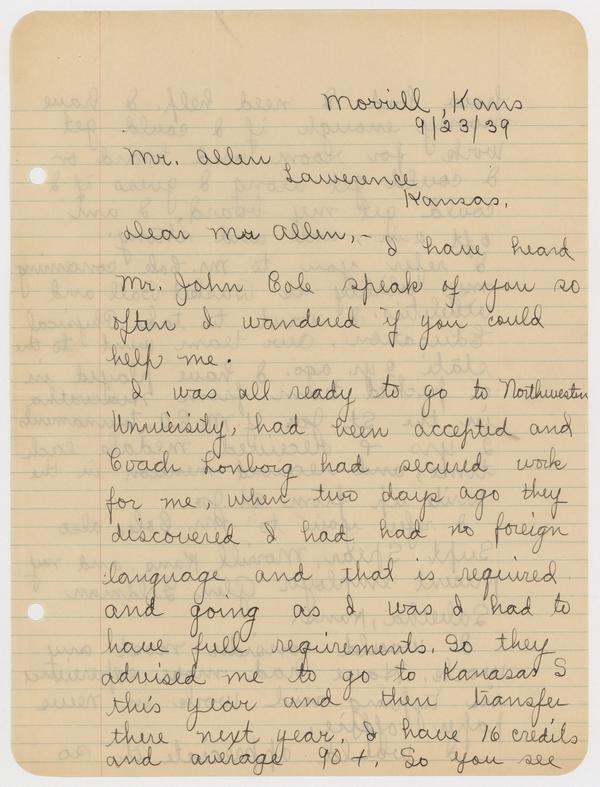 Morrill, Kans
9/23/39
Mr. Allen
Lawerence
Kansas.
Dear Mr Allen,-
I have heard
Mr. John Cole speak of you so
often I wandered if you could
help me.
I was all ready to go to Northwestern
University, had been accepted and
Coach Lonborg had secured work
for me, when two days ago they
discovered I had had no foreign
language and that is required
and going as I was I had to
have full requirements. So they
advised me to go to Kanasas S
this year and then transfer
there next year. I have 16 credits
and average 90+. So you see